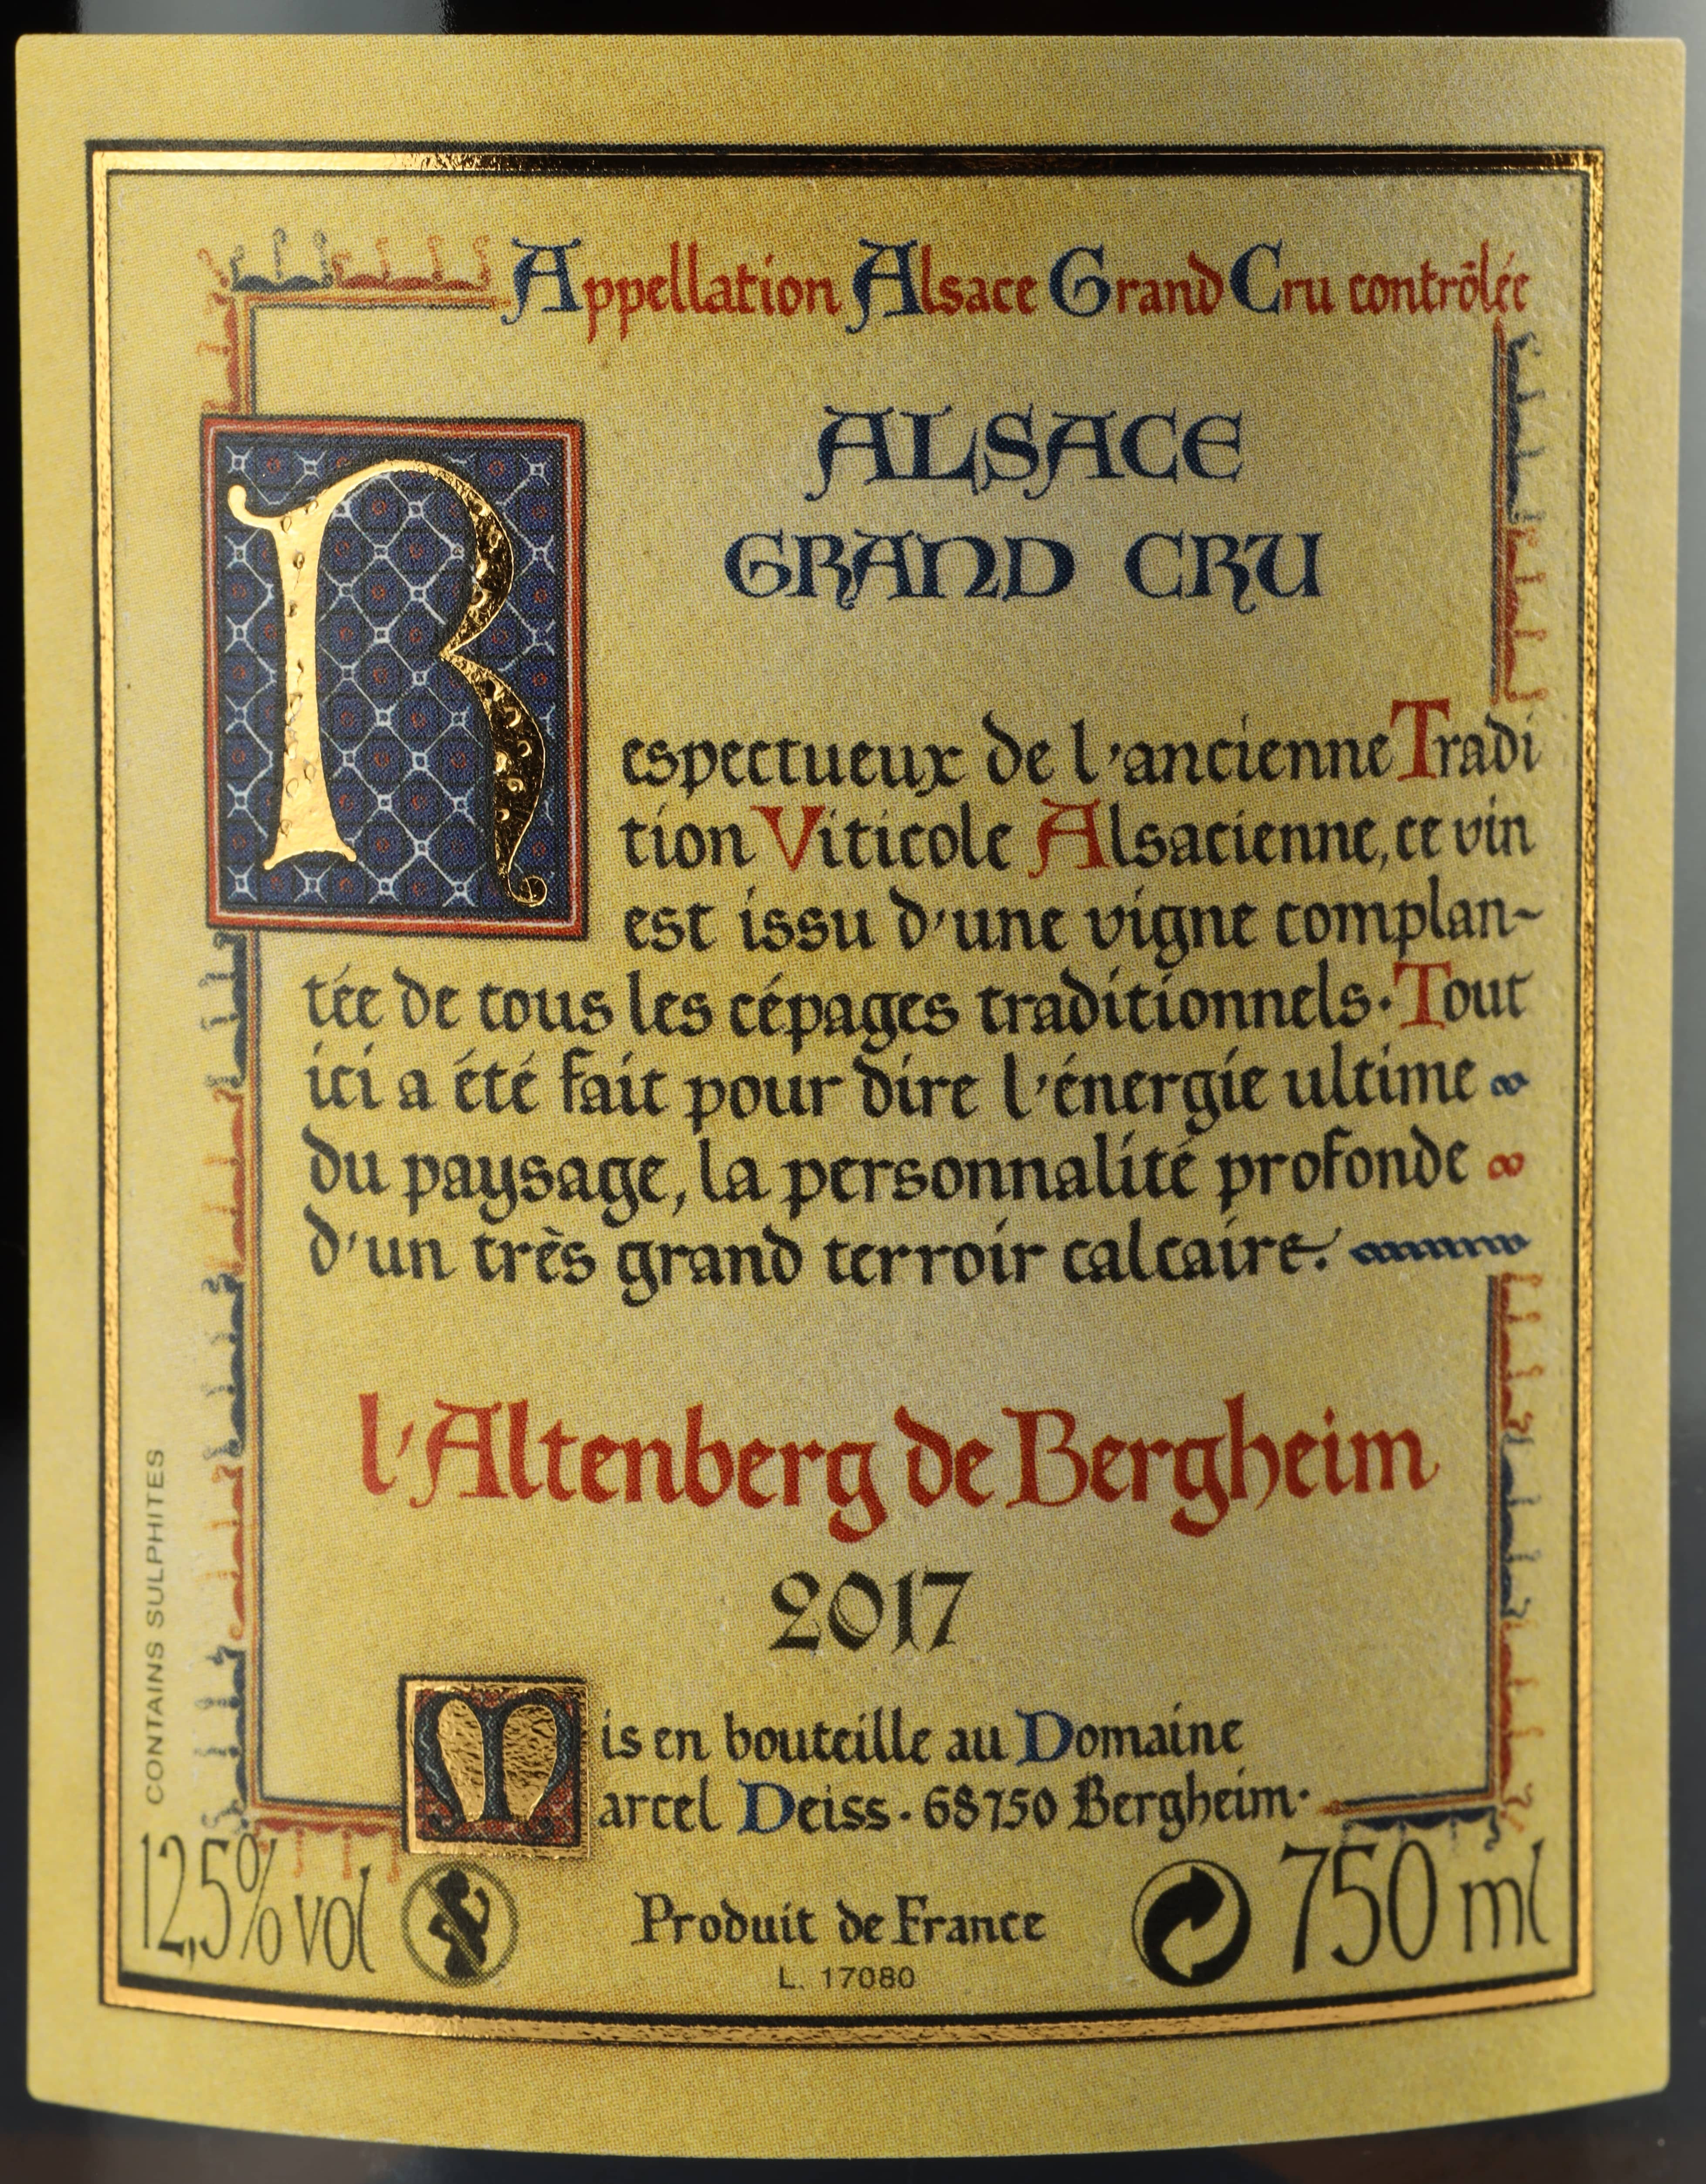 Appellation Alsace Grand Cru contrôlée
ALSACE
GRAND CRU
Respectueux de l'ancienne Tradi
tion Viticole Alsacienne, ce vin
est issu d'une vigne complan-
tée de tous les cépages traditionnels. Tout
ici a été fait pour dire l'énergie ultime
du paysage, la personnalité profonde
d'un très grand terroir calcaire.
l'Altenberg de Bergheim
2017
Mis en bouteille au Domaine
Marcel Deiss. 68750 Bergheim.
CONTAINS SULPHITES
12,5% vol
Produit de France
750 ml
L. 17080